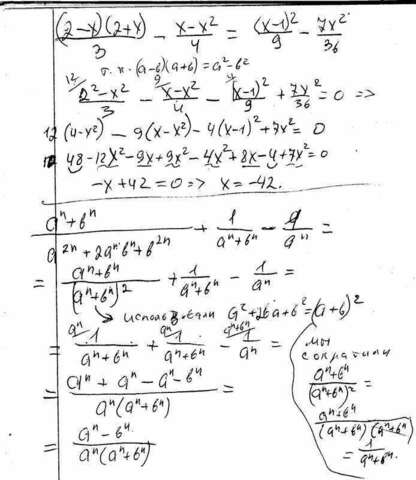 (2-x)(2+x)/3 - x-x²/4 = (x-1)²/9 - 7x²/36
т. к. (a-b)(a+b) = a²-b²
12/ 2²-x²/3 - 9/ x-x²/4 - 4/ (x-1)²/9 + 7x²/36 = 0 =>
12(4-x²) - 9(x-x²) - 4(x-1)² + 7x² = 0
48-12x²-9x+9x²-4x²+8x-4+7x²=0
-x+42=0 => x=-42.
aⁿ+bⁿ/a²ⁿ+2aⁿbⁿ+b²ⁿ + 1/aⁿ+bⁿ - 1/aⁿ =
= aⁿ+bⁿ/(aⁿ+bⁿ)² + 1/aⁿ+bⁿ - 1/aⁿ =
использовали a²+2ba+b²=(a+b)²
= aⁿ/ 1/aⁿ+bⁿ + aⁿ/ 1/aⁿ+bⁿ - aⁿ+bⁿ/ 1/aⁿ =
= aⁿ+aⁿ-aⁿ-bⁿ/aⁿ(aⁿ+bⁿ) =
= aⁿ-bⁿ/aⁿ(aⁿ+bⁿ)
мы
сократили
aⁿ+bⁿ/(aⁿ+bⁿ)² =
aⁿ+bⁿ/(aⁿ+bⁿ)(aⁿ+bⁿ)
= 1/aⁿ+bⁿ.